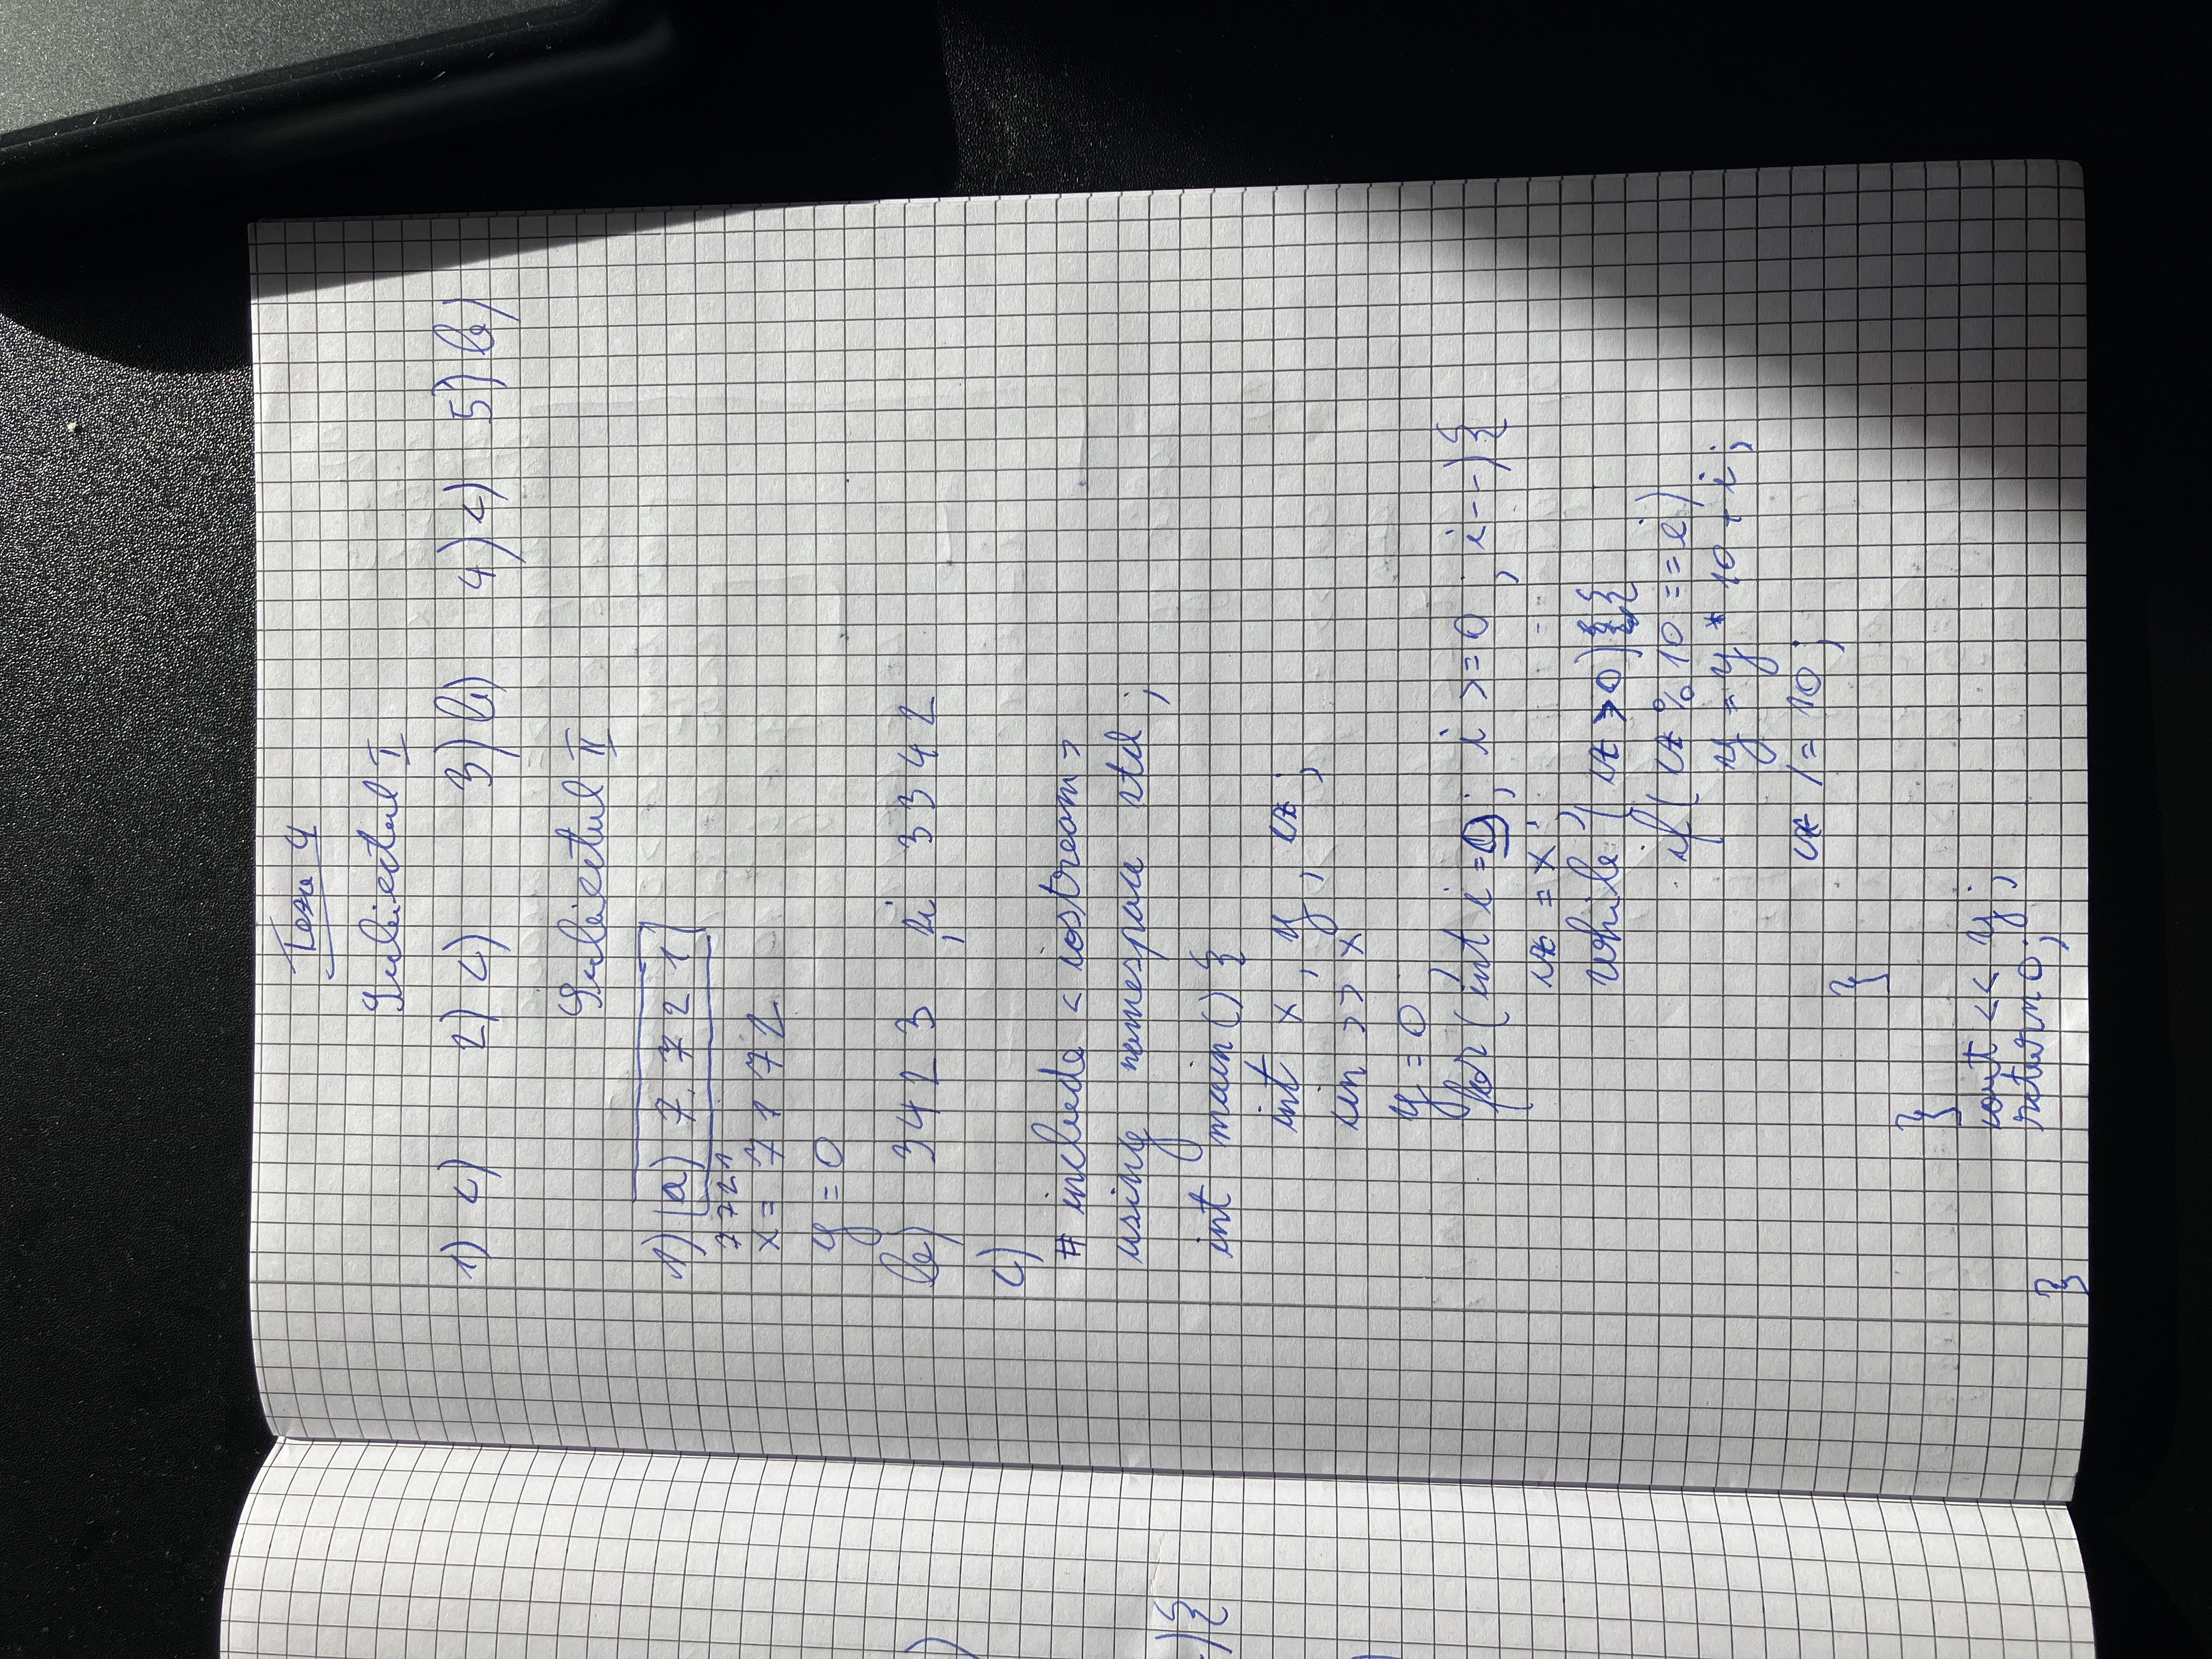 Teza 4
Subiectul I
1) c) 2) c) 3) b) 4) c) 5) b)
Subiectul II
1) a) 7721
7721
x = 7172
y = 0
b) 3423 și 3342
c)
# include < iostream >
using namespace std ;
int main() {
int x , y , cx ;
cin >> x
y = 0 ;
for ( int i = 9 ; i >= 0 ; i -- ) {
cx = x ;
while ( cx > 0 ) {
if ( cx % 10 == i )
y = y * 10 + i ;
cx /= 10 ;
}
}
cout << y ;
return 0 ;
}
) {